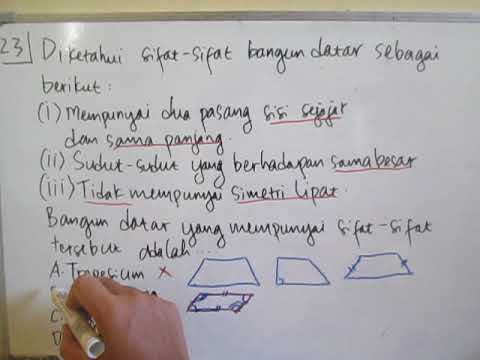 23| Diketahui sifat-sifat bangun datar sebagai
berikut :
(i) Mempunyai dua pasang sisi sejajar
dan sama panjang.
(ii) Sudut-sudut yang berhadapan sama besar
(iii) Tidak mempunyai simetri lipat.
Bangun datar yang mempunyai sifat-sifat
tersebut adalah...
A. Trapesium x
C.
D